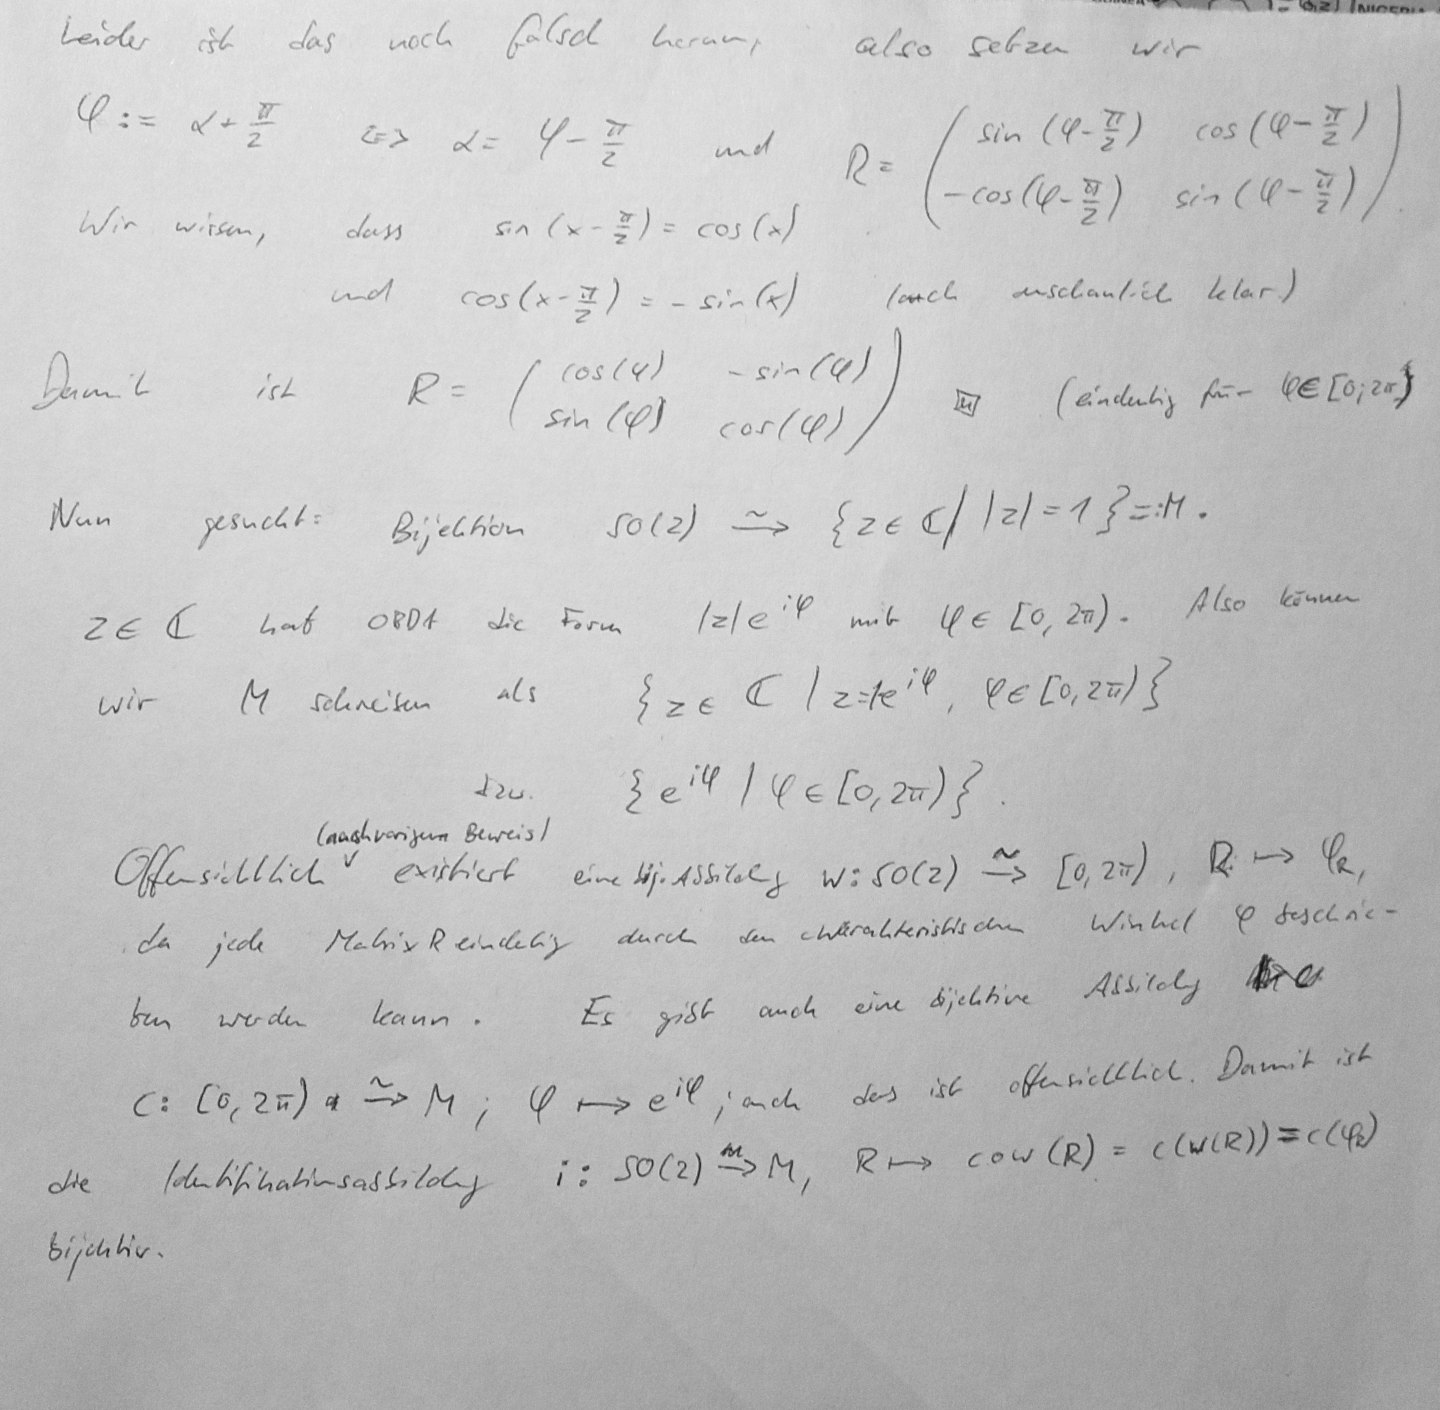 Leider ist das noch falsch herum, also setzen wir
φ := α + π/2 <=> α = φ - π/2 und R = ( sin(φ-π/2) cos(φ-π/2)
-cos(φ-π/2) sin(φ-π/2) )
Wir wissen, dass sin(x-π/2) = cos(x)
und cos(x-π/2) = -sin(x) (auch anschaulich klar)
Damit ist R = ( cos(φ) -sin(φ)
sin(φ) cos(φ) ) (eindeutig für φ∈[0;2π)
Nun gesucht: Bijektion SO(2) ~→ {z ∈ ℂ | |z| = 1} =: M.
z ∈ ℂ hat OBDA die Form |z|e^{iφ} mit φ ∈ [0, 2π). Also können
wir M schreiben als {z ∈ ℂ | z=1e^{iφ}, φ∈[0,2π)}
bzw. {e^{iφ} | φ ∈ [0, 2π)}.
(nach vorigem Beweis)
Offensichtlich existiert eine bij. Abbildung w: SO(2) ~→ [0, 2π), R ↦ φ_R,
da jede Matrix R eindeutig durch den charakteristischen Winkel φ beschrie-
ben werden kann. Es gibt auch eine bijektive Abbildung
c: [0, 2π) ~→ M; φ ↦ e^{iφ}; auch das ist offensichtlich. Damit ist
die Identifikationsabbildung i: SO(2) ~→ M, R ↦ c∘w(R) = c(w(R)) = c(φ_R)
bijektiv.